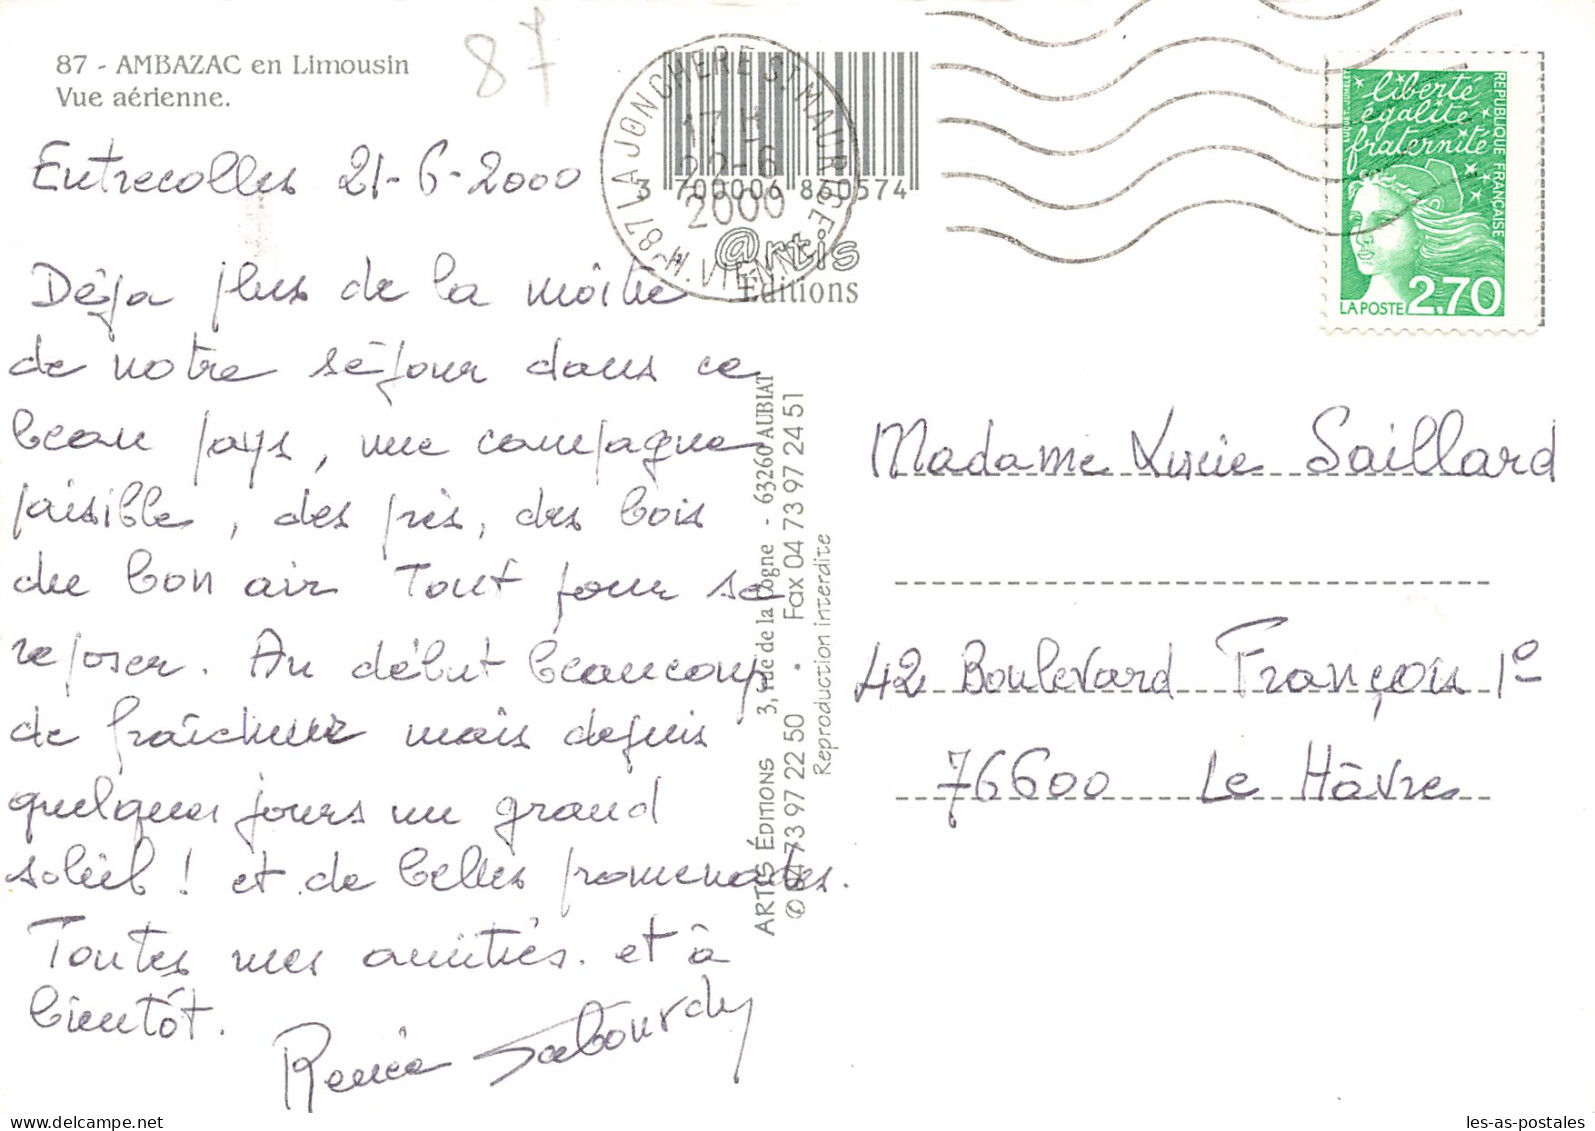 87 - AMBAZAC en Limousin
Vue aérienne.
87
Entrecolles 21-6-2000
Déja plus de la moîtié
de notre séjour dans ce
beau pays, une campagne
paisible, des près, des bois
du bon air Tout pour se
reposer. Au début beaucoup
de fraîcheur mais depuis
quelques jours un grand
soleil ! et de belles promenades.
Toutes mes amitiés. et à
bientôt.
Renée
87 LA JONCHERE ST MAURICE
H. VIENNE
17 H
22-6
2000
3 700006 860574
@rtis
Editions
ARTIS ÉDITIONS 3, rue de la Logne - 63260 AUBIAT
© 04 73 97 22 50 • Fax 04 73 97 24 51
Reproduction interdite
liberté
égalité
fraternité
REPUBLIQUE FRANÇAISE
LA POSTE 2,70
Madame Lucie Saillard
42 Boulevard François 1º
76600 Le Hâvre
les-as-postales.com